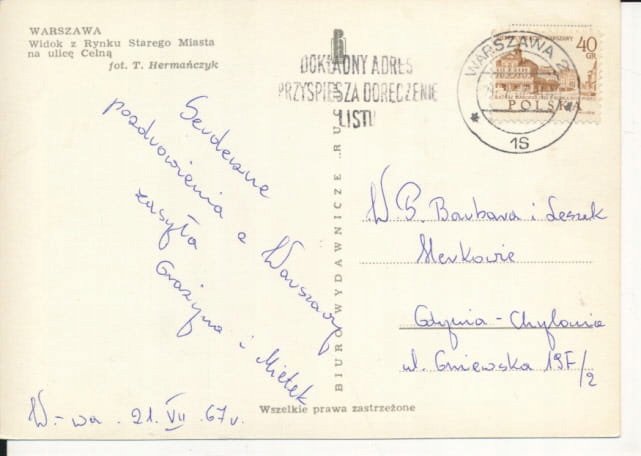 WARSZAWA
Widok z Rynku Starego Miasta
na ulicę Celną
fot. T. Hermańczyk
DOKŁADNY ADRES
PRZYSPIESZA DORĘCZENIE
LISTU
WARSZAWA 2
1S
40
GR
POLSKA
BIURO WYDAWNICZE „RUCH"
Serdeczne
pozdrowienia z Warszawy
zasyła
Grażyna i Mietek
W-wa. 21. VII 67r.
W P. Barbara i Leszek
Gdynia - Chylonia
ul. Gniewska 19F/2
Wszelkie prawa zastrzeżone